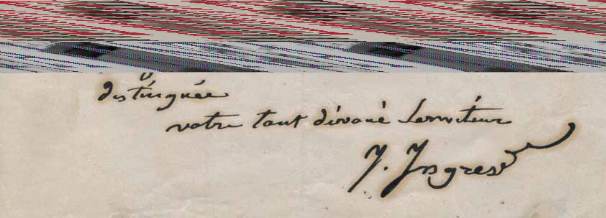 distinguée
votre tout dévoué serviteur
J. Ingres